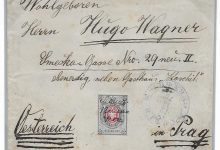 Wohlgeboren
Herrn Hugo Wagner
Smečka-Gasse Nro 29 neu II
neben Gasthaus
Oesterreich
in Prag